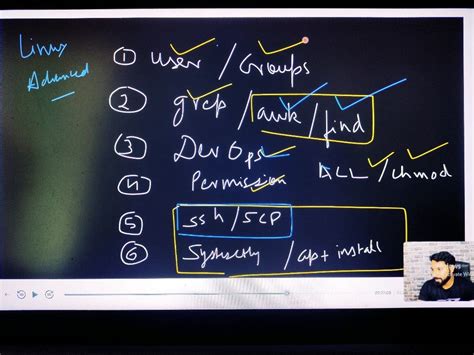 Linux
Advanced
① User / Groups
② grep / awk / find
③ DevOps
④ Permission ACL / chmod
⑤ ssh / SCP
⑥ Systectly / apt install